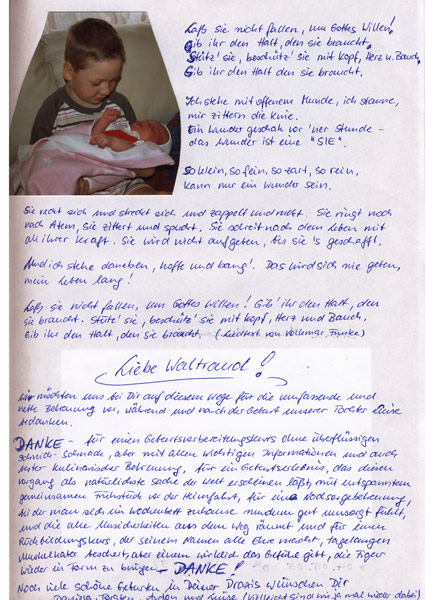 Laß sie nicht fallen, um Gottes Willen!
Gib ihr den Halt, den sie braucht.
Stütz' sie, beschütz' sie mit Kopf, Herz u. Bauch.
Gib ihr den Halt den sie braucht.
Ich stehe mit offenem Munde, ich staune,
mir zittern die Knie.
Ein Wunder geschah vor 'ner Stunde -
das Wunder ist eine "SIE".
So klein, so fein, so zart, so rein,
kann nur ein Wunder sein.
Sie reckt sich und streckt sich und zappelt und. Sie ringt noch
nach Atem, sie zittert und spuckt. Sie schreit nach dem Leben mit
all ihrer Kraft. Sie wird nicht aufgeben, bis sie's geschafft.
Und ich stehe daneben, hoffe und bang'. Das wird sich nie geben,
mein Leben lang!
Laß sie nicht fallen, um Gottes Willen! Gib' ihr den Halt, den
sie braucht. Stütz' sie, beschütz' sie mit Kopf, Herz und Bauch.
Gib ihr den Halt, den sie braucht. (Liedtext von Volkmar Funke)
Liebe Waltraud!
Wir möchten uns bei Dir auf diesem Wege für die umfassende und
nette Betreuung vor, während und nach der Geburt unserer Tochter Luise
bedanken.
DANKE - für einen Geburtsvorbereitungskurs ohne überflüssigen
, aber mit allen wichtigen Informationen und auch
kulinarischer Betreuung, für ein Geburtserlebnis, das diesen
Vorgang als natürlichste Sache der Welt erscheinen läßt, mit entspanntem
gemeinsamen Frühstück vor der Heimfahrt, für eine Nachsorgebetreuung,
bei der man sich im Wochenbett zuhause rundum gut umsorgt fühlt,
und die alle Unsicherheiten aus dem Weg räumt und für einen
Rückbildungskurs, der seinem Namen alle Ehre macht, tagelangen
Muskelkater beschert, aber einem wirklich das Gefühl gibt, die Figur
wieder in Form zu bringen - DANKE!
Noch viele schöne Geburten in Deiner Praxis wünschen Dir
und Luise (Vielleicht sind wir ja mal wieder dabei)